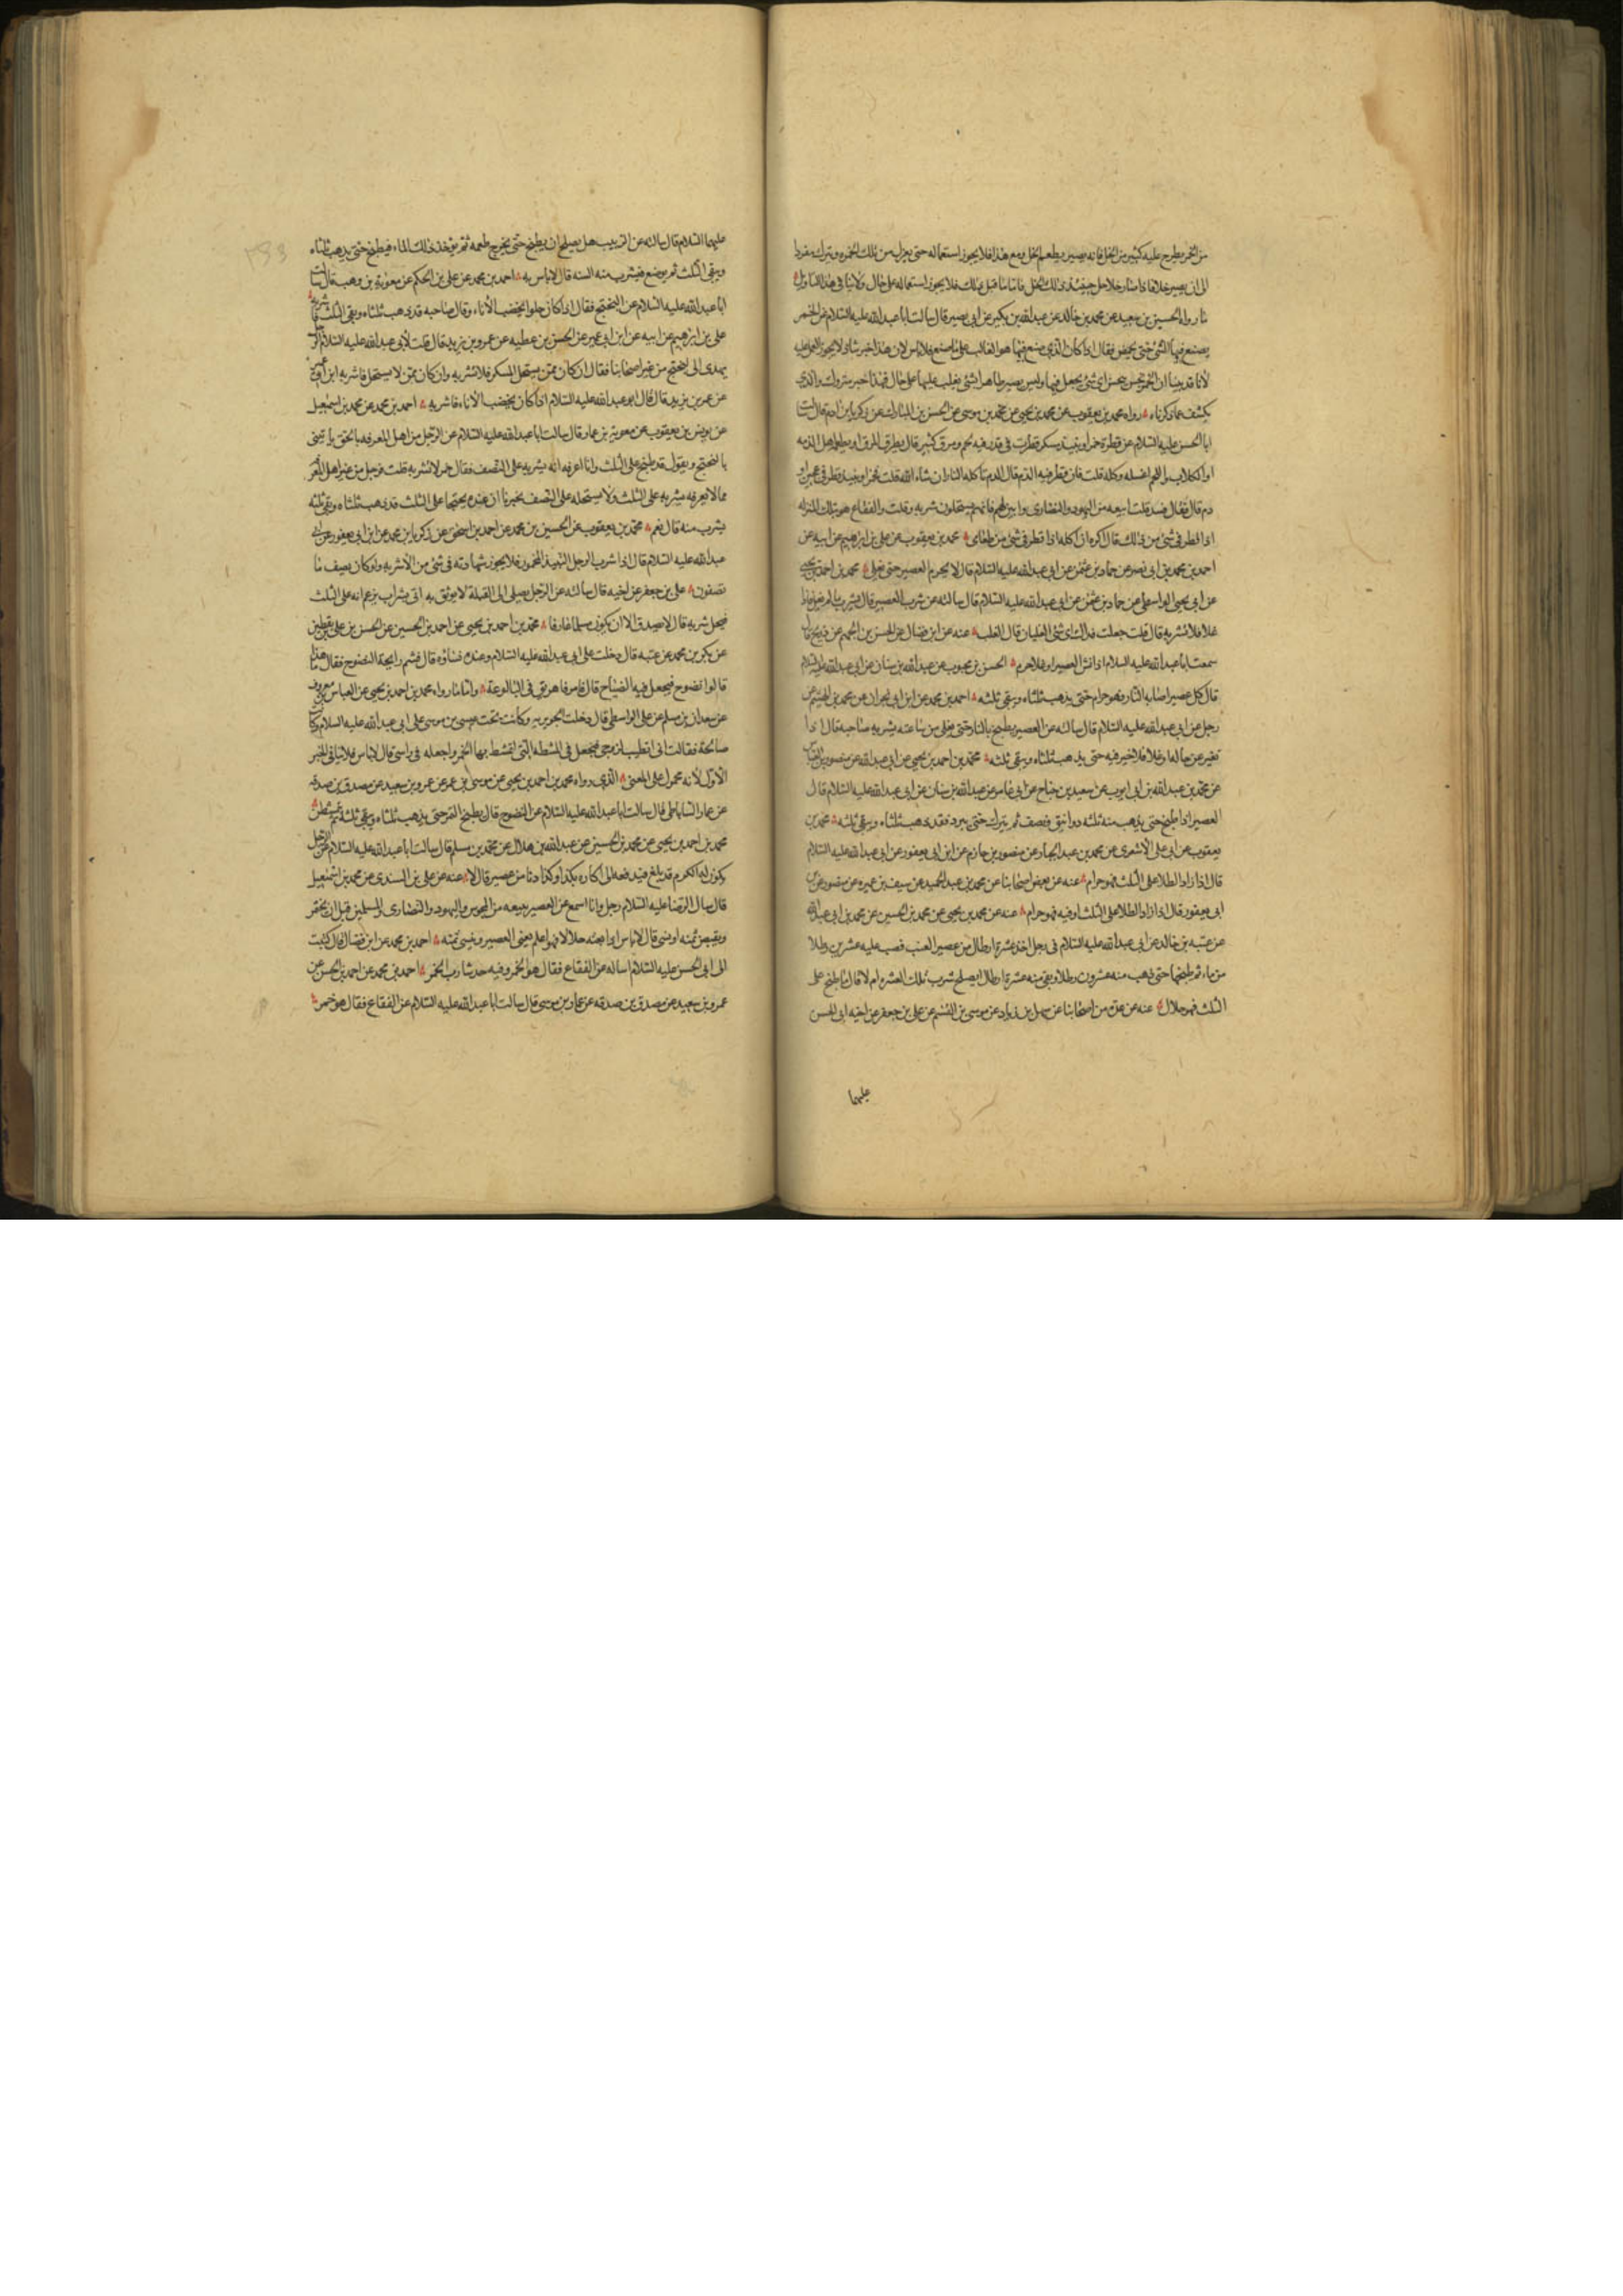 من الخمر يطرح عليه كثير من الخل فانه يصير بطعم الخل ومع هذا فلا يجوز استعماله حتى يعزل من تلك الخمره ويترك مفردا
الى ان يصير خلا فاذا صار خلا حل حينئذ ذلك الخل فاما ما قبل ذلك فلا يجوز استعماله على حال ولا ينافي هذا التاويل
ما رواه الحسين بن سعيد عن محمد بن خالد عن عبد الله بن بكير عن ابي بصير قال سالت ابا عبد الله عليه السلام عن الخمر
يصنع فيها الشئ حتى يحمض فقال اذا كان الذي صنع فيها هو الغالب على ما صنع فلا باس لان هذا خبر شاذ لا يجوز العمل عليه
لانا قد بينا ان الخمر نجس ينجس اي شئ يجعل فيها وليس يصير طاهرا بشئ يغلب عليها على حال فهذا خبر متروك والذي
يكشف عما ذكرناه رواه محمد بن يعقوب عن محمد بن يحيى عن محمد بن موسى عن الحسن بن المبارك عن زكريا بن ادم قال سالت
ابا الحسن عليه السلام عن قطرة خمر او نبيذ مسكر قطرت في قدر فيه لحم ومرق كثير قال يهراق المرق او يطعمه اهل الذمه
او الكلاب واللحم اغسله وكله قلت فان قطر فيه الدم قال الدم تاكله النار ان شاء الله قلت فخمر او نبيذ قطر في عجين او
دم قال فقال فسد قلت ابيعه من اليهود والنصارى وابين لهم فانهم يستحلون شربه وقلت والفقاع هو بتلك المنزله
اذا قطر في شئ من ذلك قال اكره ان اكله اذا قطر في شئ من طعامي محمد بن يعقوب عن علي بن ابرهيم عن ابيه عن
احمد بن محمد بن ابي نصر عن حماد بن عثمن عن ابي عبد الله عليه السلام قال لا يحرم العصير حتى يغلي محمد بن احمد بن يحيى
عن ابي يحيى الواسطي عن حماد بن عثمن عن ابي عبد الله عليه السلام قال سالته عن شرب العصير قال يشربه ما لم يغل فاذا
غلا فلا تشربه قال قلت جعلت فداك اي شئ الغليان قال القلب عنه عن ابن فضال عن الحسن بن الجهم عن ذريح قال
سمعت ابا عبد الله عليه السلام اذا نش العصير او غلا حرم الحسن بن محبوب عن عبد الله بن سنان عن ابي عبد الله عليه السلام
قال كل عصير اصابه النار فهو حرام حتى يذهب ثلثاه ويبقى ثلثه احمد بن محمد عن ابن ابي نجران عن محمد بن الهيثم عن
رجل عن ابي عبد الله عليه السلام قال سالته عن العصير يطبخ بالنار حتى يغلي من ساعته يشربه صاحبه قال اذا
تغير عن حاله او غلا فلا خير فيه حتى يذهب ثلثاه ويبقى ثلثه محمد بن احمد بن يحيى عن ابي عبد الله عن منصور بن العباس
عن محمد بن عبد الله بن ابي ايوب عن سعيد بن جناح عن ابي عامر عن عبد الله بن سنان عن ابي عبد الله عليه السلام قال
العصير اذا طبخ حتى يذهب منه ثلثه دوانيق ونصف ثم يترك حتى يبرد فقد ذهب ثلثاه وبقي ثلثه محمد بن
يعقوب عن ابي علي الاشعري عن محمد بن عبد الجبار عن منصور بن حازم عن ابن ابي يعفور عن ابي عبد الله عليه السلام
قال اذا زاد الطلا على الثلث فهو حرام عنه عن بعض اصحابنا عن محمد بن عبد الحميد عن سيف بن عميره عن منصور عن ابن
ابي يعفور قال اذا زاد الطلا على الثلث اوقيه فهو حرام عنه عن محمد بن يحيى عن محمد بن الحسين عن محمد بن ابي عبد الله
عن عقبه بن خالد عن ابي عبد الله عليه السلام في رجل اخذ عشرة ارطال من عصير العنب فصب عليه عشرين رطلا
من ماء ثم طبخها حتى ذهب منه عشرون رطلا وبقي منه عشرة ارطال ايصلح شرب تلك العشره ام لا قال ما طبخ على
الثلث فهو حلال عنه عن عدة من اصحابنا عن سهل بن زياد عن موسى بن القسم عن علي بن جعفر عن اخيه ابي الحسن
عليهما
عليهما السلام قال سالته عن الزبيب هل يصلح ان يطبخ حتى يخرج طعمه ثم يؤخذ ذلك الماء فيطبخ حتى يذهب ثلثاه
ويبقى الثلث ثم يوضع فيشرب منه السنه قال لا باس به احمد بن محمد عن علي بن الحكم عن معوية بن وهب قال سالت
ابا عبد الله عليه السلام عن البختج فقال اذا كان حلوا يخضب الاناء وقال صاحبه قد ذهب ثلثاه وبقي الثلث فاشربه
علي بن ابرهيم عن ابيه عن ابن ابي عمير عن الحسن بن عطيه عن عمرو بن يزيد قال قلت لابي عبد الله عليه السلام الرجل
يهدى الى البختج من غير اصحابنا فقال ان كان ممن يستحل المسكر فلا تشربه وان كان ممن لا يستحل فاشربه ابن ابي عمير
عن عمر بن يزيد قال قال ابو عبد الله عليه السلام اذا كان يخضب الاناء فاشربه احمد بن محمد عن محمد بن اسمعيل
عن يونس بن يعقوب عن معوية بن عمار قال سالت ابا عبد الله عليه السلام عن الرجل من اهل المعرفه بالحق ياتيني
بالبختج ويقول قد طبخ على الثلث وانا اعرفه انه يشربه على النصف فقال خمر لا تشربه قلت فرجل من غير اهل المعرفة
ممن لا نعرفه يشربه على الثلث ولا يستحله على النصف يخبرنا ان عنده بختجا على الثلث قد ذهب ثلثاه وبقي ثلثه
يشرب منه قال نعم محمد بن يعقوب عن الحسين بن محمد عن احمد بن اسحق عن زكريا بن محمد عن ابن ابي يعفور عن ابي
عبد الله عليه السلام قال اذا شرب الرجل النبيذ المخمور فلا يجوز شهادته في شئ من الاشربه ولو كان يصف ما
تصفون علي بن جعفر عن اخيه قال سالته عن الرجل يصلي الى القبلة لا يوثق به اتى بشراب يزعم انه على الثلث
فيحل شربه قال لا يصدق الا ان يكون مسلما عارفا محمد بن احمد بن يحيى عن احمد بن الحسين عن الحسن بن علي بن يقطين
عن بكر بن محمد عن عيثمه قال دخلت على ابي عبد الله عليه السلام وعنده نساؤه قال فشم رايحة النضوح فقال ما هذا
قالوا نضوح فيجعل فيه الضياح قال فامر فاهريق في البالوعة واما ما رواه محمد بن احمد بن يحيى عن العباس بن معروف
عن سعدان بن مسلم عن علي الواسطي قال دخلت الجويريه وكانت تحت عيسى بن موسى على ابي عبد الله عليه السلام وكانت
صالحة فقالت اني اتطيب لزوجي فيجعل في المشطه التي امتشط بها الخمر واجعله في راسي قال لا باس فلا ينافي الخبر
الاول لانه محمول على المعنى الذي رواه محمد بن احمد بن يحيى عن موسى بن عمر عن عمرو بن سعيد عن مصدق بن صدقه
عن عمار الساباطي قال سالت ابا عبد الله عليه السلام عن النضوح قال يطبخ التمر حتى يذهب ثلثاه ويبقى ثلثه ثم يمتشطن
محمد بن احمد بن يحيى عن محمد بن الحسين عن عبد الله بن هلال عن محمد بن مسلم قال سالت ابا عبد الله عليه السلام عن الرجل
يكون له الكرم قد بلغ فيدفعه الى اكاره بكذا وكذا دنا من عصير قال لا عنه عن علي بن السندي عن محمد بن اسمعيل
قال سال الرضا عليه السلام رجل وانا اسمع عن العصير يبيعه من المجوس واليهود والنصارى والمسلمين قبل ان يختمر
ويقبض ثمنه او ينسى قال لا باس اذا بعته حلالا فهو اعلم يعني العصير وينسى ثمنه احمد بن محمد عن ابن فضال قال كتبت
الى ابي الحسن عليه السلام اساله عن الفقاع فقال هو الخمر وفيه حد شارب الخمر احمد بن محمد عن احمد بن الحسن عن
عمرو بن سعيد عن مصدق بن صدقه عن عمار بن موسى قال سالت ابا عبد الله عليه السلام عن الفقاع فقال هو خمر